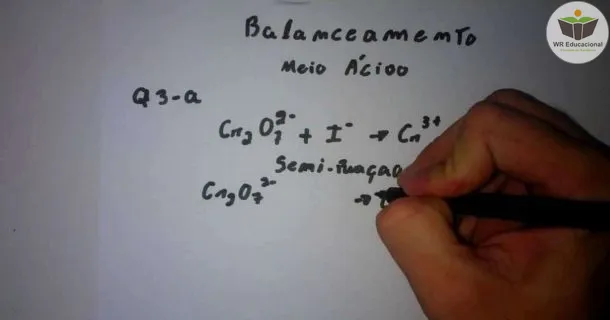 Balanceamento
Meio Ácido
Q3-a
Cr₂O₇²⁻ + I⁻ → Cr³⁺
Semi-reação
Cr₂O₇²⁻ →
WR Educacional